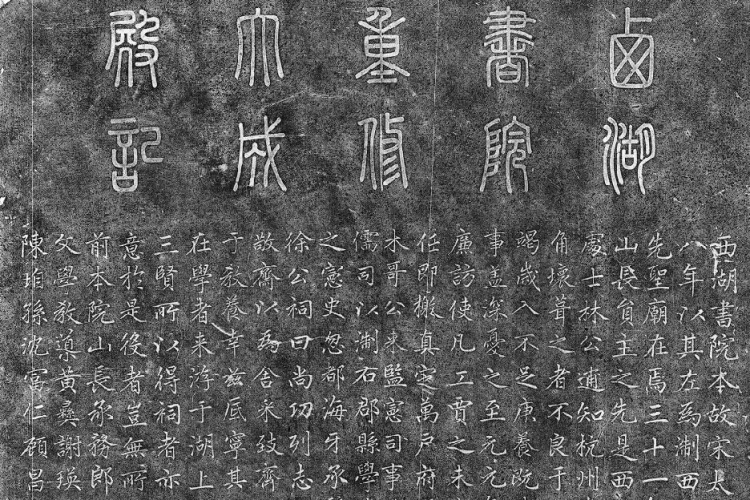 西湖
書院
重修
大成
殿記
西湖書院本故宋太
八年以其左為淛西
先聖廟在焉三十一
山長員主之先是西
處士林公逋知杭州
角壞葺之者不良于
竭歲入不足庚養既
事盖深憂之至元元
廉訪使凡工賈之未
任即搬真定萬戶府
木哥公来監憲司事
儒司以淛石郡縣學
之憲史忽都海牙承
徐公祠曰尚功列志
敬齋以為舍采致齊
于教養幸兹底寧其
在學者来游于湖上
三賢所以得祠者亦
意於是後者豈無所
前本院山長承務郎
父學教導黄彝謝瑛
陳珀孫沈富仁顧昌